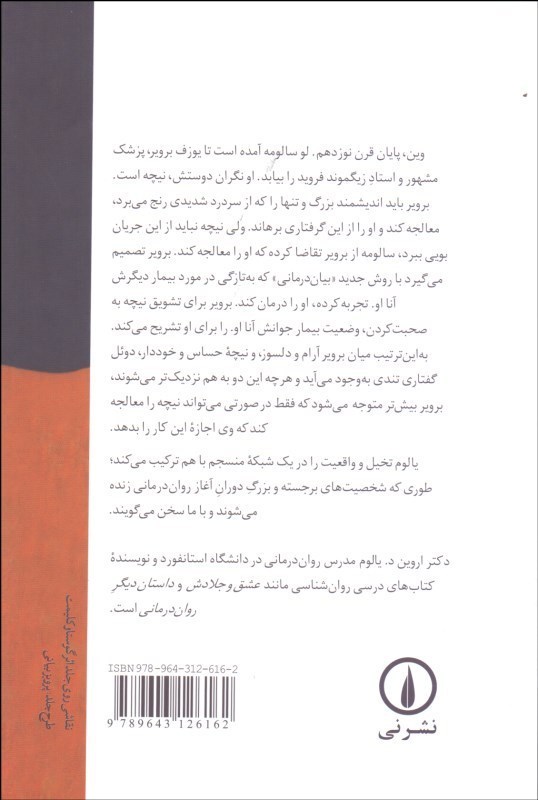 وین، پایان قرن نوزدهم. لو سالومه آمده است تا یوزف برویر، پزشک
مشهور و استادِ زیگموند فروید را بیابد. او نگران دوستش، نیچه است.
برویر باید اندیشمند بزرگ و تنها را که از سردرد شدیدی رنج می‌برد،
معالجه کند و او را از این گرفتاری برهاند. ولی نیچه نباید از این جریان
بویی ببرد، سالومه از برویر تقاضا کرده که او را معالجه کند. برویر تصمیم
می‌گیرد با روش جدید «بیان‌درمانی» که به‌تازگی در مورد بیمار دیگرش
آنا او. تجربه کرده، او را درمان کند. برویر برای تشویق نیچه به
صحبت‌کردن، وضعیت بیمار جوانش آنا او. را برای او تشریح می‌کند.
به‌این‌ترتیب میان برویر آرام و دلسوز، و نیچهٔ حساس و خوددار، دوئل
گفتاری تندی به‌وجود می‌آید و هرچه این دو به هم نزدیک‌تر می‌شوند،
برویر بیش‌تر متوجه می‌شود که فقط در صورتی می‌تواند نیچه را معالجه
کند که وی اجازهٔ این کار را بدهد.
یالوم تخیل و واقعیت را در یک شبکهٔ منسجم با هم ترکیب می‌کند؛
طوری که شخصیت‌های برجسته و بزرگِ دورانِ آغاز روان‌درمانی زنده
می‌شوند و با ما سخن می‌گویند.
دکتر اروین د. یالوم مدرس روان‌درمانی در دانشگاه استانفورد و نویسندهٔ
کتاب‌های درسی روان‌شناسی مانند عشق و جلادش و داستان دیگرِ
روان‌درمانی است.
نقاشی روی جلد: اثر گوستاو کلیمت
طرح جلد: پرویز بیانی
ISBN 978-964-312-616-2
9 789643 126162
نشرنی